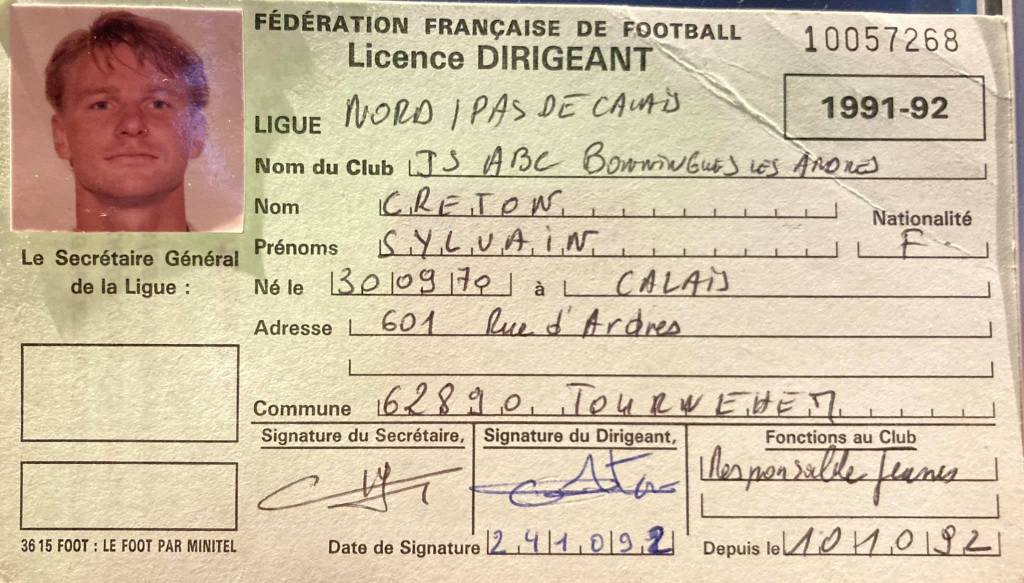 FÉDÉRATION FRANÇAISE DE FOOTBALL
Licence DIRIGEANT
10057268
1991-92
LIGUE NORD / PAS DE CALAIS
Nom du Club JS ABC BONNINGUES LES ARDRES
Nom CRETON
Nationalité
Prénoms SYLVAIN F.
Le Secrétaire Général
de la Ligue :
Né le 30 09 70 à CALAIS
Adresse 601 Rue d'Ardres
Commune 62890 TOURNEHEM
Signature du Secrétaire, Signature du Dirigeant, Fonctions au Club
Responsable Jeunes
3615 FOOT : LE FOOT PAR MINITEL
Date de Signature 24 10 92 Depuis le 10 10 92